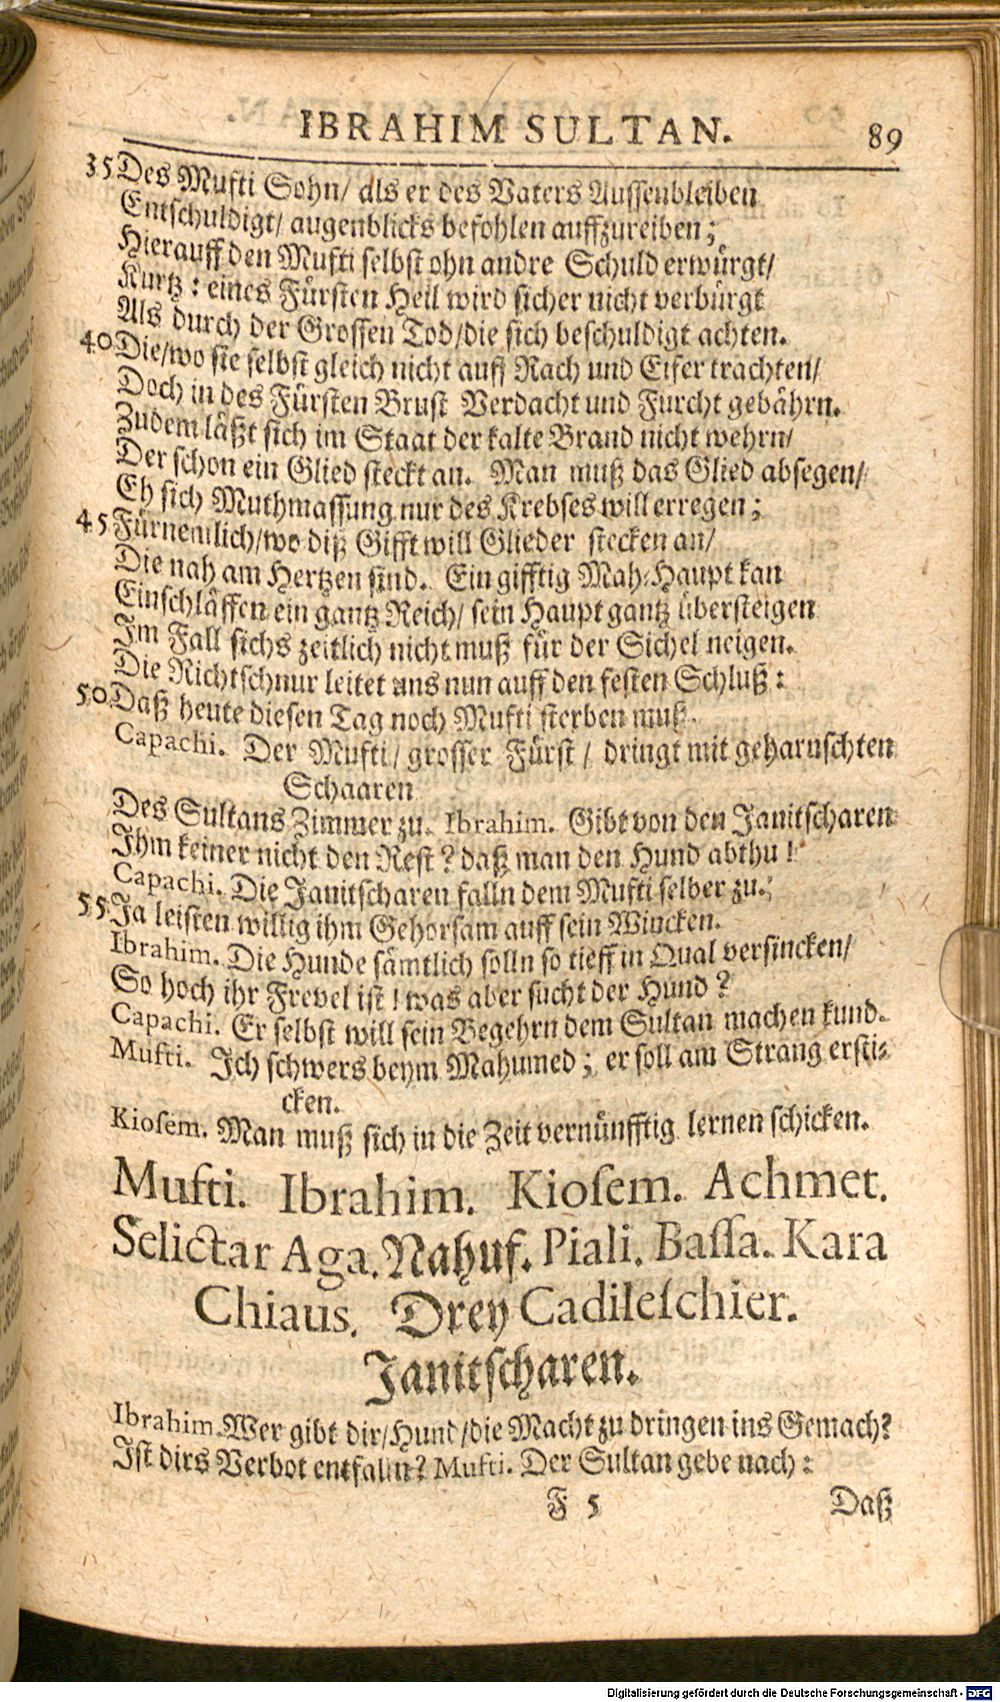 IBRAHIM SULTAN. 89
35 Des Mufti Sohn/ als er des Vaters Aussenbleiben
Entschuldigt/ augenblicks befohlen auffzureiben;
Hierauff den Mufti selbst ohn andre Schuld erwürgt/
Kurtz: eines Fürsten Heil wird sicher nicht verbürgt
Als durch der Grossen Tod/die sich beschuldigt achten.
40 Die/wo sie selbst gleich nicht auff Rach und Eifer trachten/
Doch in des Fürsten Brust Verdacht und Furcht gebährn.
Zudem läßt sich im Staat der kalte Brand nicht wehrn/
Der schon ein Glied steckt an. Man muß das Glied absegen/
Eh sich Muthmassung nur des Krebses will erregen;
45 Fürnemlich/wo diß Gifft will Glieder stecken an/
Die nah am Hertzen sind. Ein gifftig Mah-Haupt kan
Einschläffen ein gantz Reich/ sein Haupt gantz übersteigen
Im Fall sichs zeitlich nicht muß für der Sichel neigen.
Die Richtschnur leitet uns nun auff den festen Schluß:
50 Daß heute diesen Tag noch Mufti sterben muß.
Capachi. Der Mufti/ grosser Fürst/ dringt mit geharnschten
Schaaren
Des Sultans Zimmer zu. Ibrahim. Gibt von den Janitscharen
Ihm keiner nicht den Rest? daß man den Hund abthu!
Capachi. Die Janitscharen falln dem Mufti selber zu.;
55 Ja leisten willig ihm Gehorsam auff sein Wincken.
Ibrahim. Die Hunde sämtlich solln so tieff in Qual versincken/
So hoch ihr Frevel ist! was aber sucht der Hund?
Capachi. Er selbst will sein Begehrn dem Sultan machen kund.
Mufti. Ich schwers beym Mahumed; er soll am Strang ersti-
cken.
Kiosem. Man muß sich in die Zeit vernünfftig lernen schicken.
Mufti. Ibrahim. Kiosem. Achmet.
Selictar Aga. Nahuf. Piali. Bassa. Kara
Chiaus. Drey Cadileschier.
Janitscharen.
Ibrahim. Wer gibt dir/Hund/die Macht zu dringen ins Gemach?
Ist dirs Verbot entfalln? Mufti. Der Sultan gebe nach:
F 5 Daß
Digitalisierung gefördert durch die Deutsche Forschungsgemeinschaft - DFG